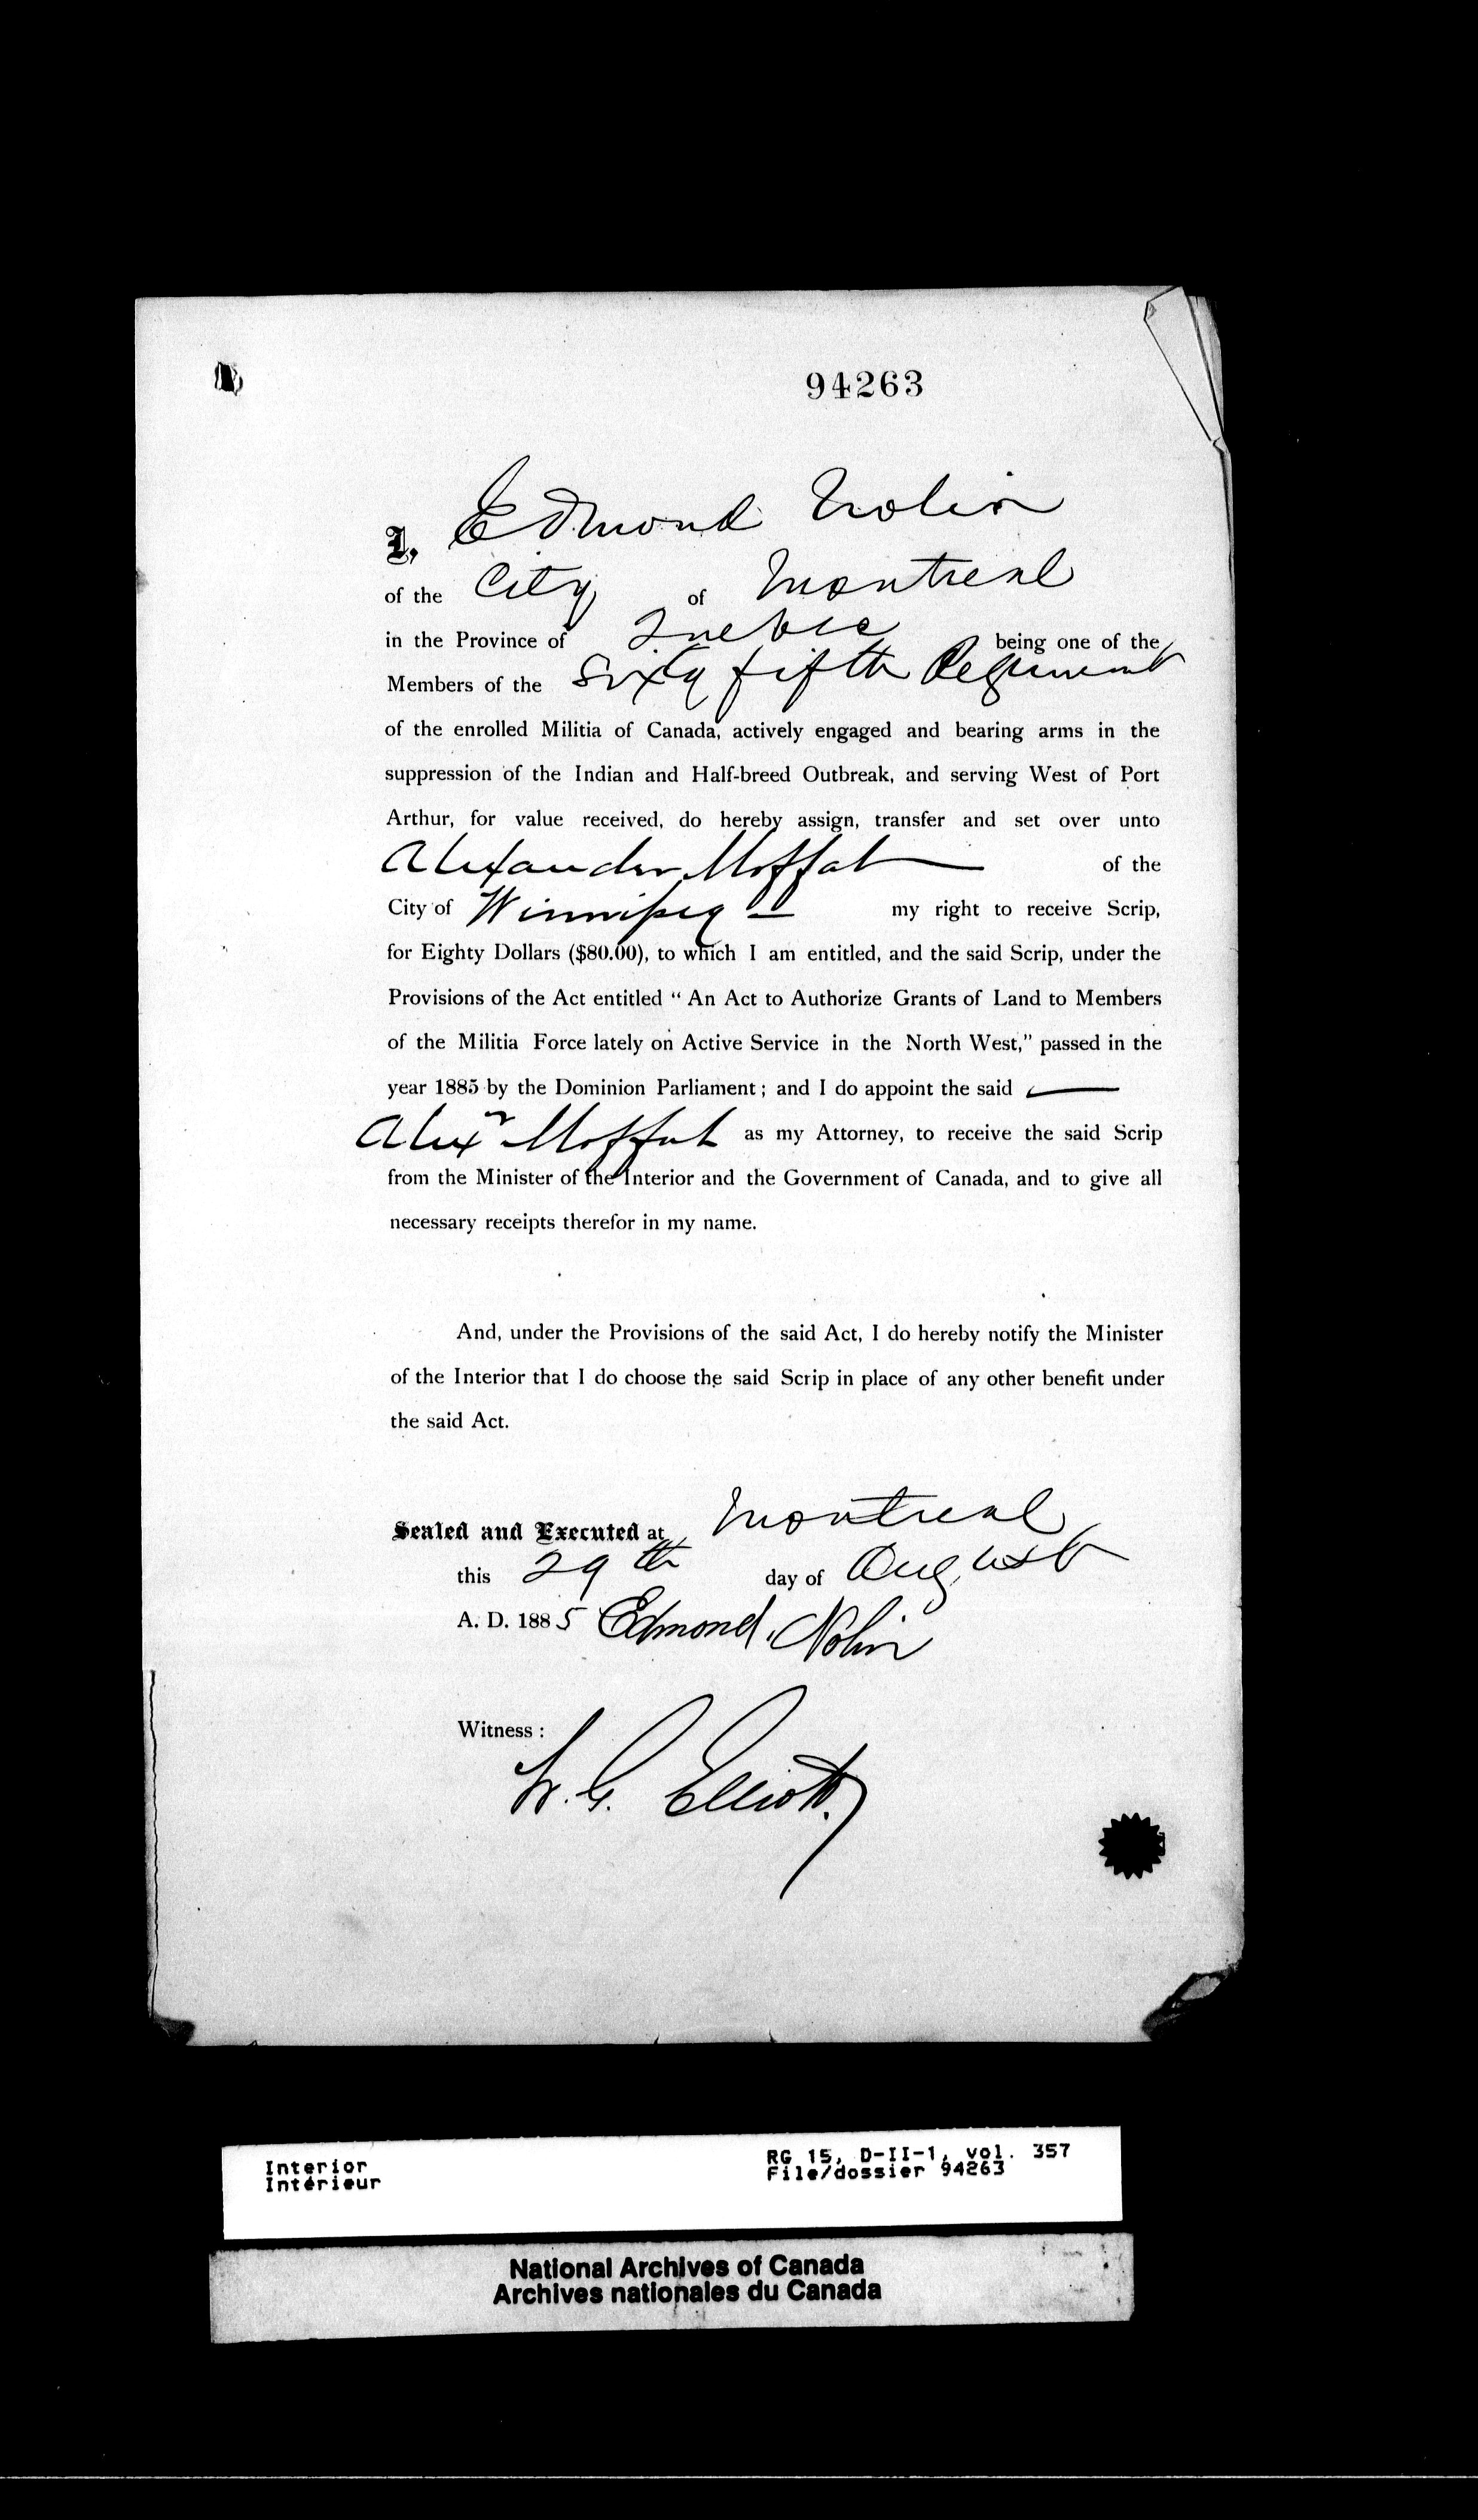 94263
I, Edmond Nolin
of the City of Montreal
in the Province of Quebec being one of the
Members of the Sixty fifth Regiment
of the enrolled Militia of Canada, actively engaged and bearing arms in the
suppression of the Indian and Half-breed Outbreak, and serving West of Port
Arthur, for value received, do hereby assign, transfer and set over unto
Alexander Moffat of the
City of Winnipeg — my right to receive Scrip,
for Eighty Dollars ($80.00), to which I am entitled, and the said Scrip, under the
Provisions of the Act entitled “ An Act to Authorize Grants of Land to Members
of the Militia Force lately on Active Service in the North West,” passed in the
year 1885 by the Dominion Parliament ; and I do appoint the said —
Alexr Moffat as my Attorney, to receive the said Scrip
from the Minister of the Interior and the Government of Canada, and to give all
necessary receipts therefor in my name.
And, under the Provisions of the said Act, I do hereby notify the Minister
of the Interior that I do choose the said Scrip in place of any other benefit under
the said Act.
Sealed and Executed at Montreal
this 29th day of August
A. D. 1885 Edmond Nolin
Witness :
W. G. Elliott.
Interior
Intérieur
RG 15, D-II-1, vol. 357
File/dossier 94263
National Archives of Canada
Archives nationales du Canada